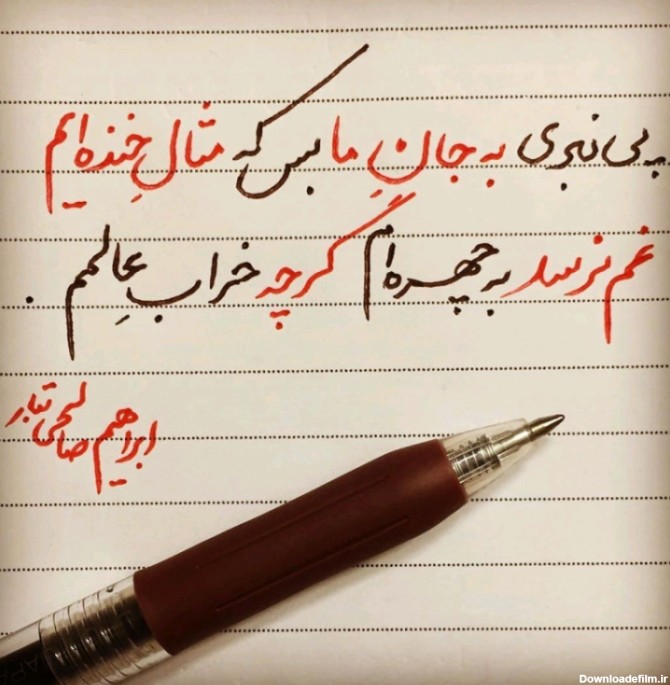 پی نبری به جانِ ما بس که مثالِ خنده ایم
غم نرسد به چهره ام گرچه خرابِ عالمم .
ابراهیم صالحی تبار
Downloadefilm.ir